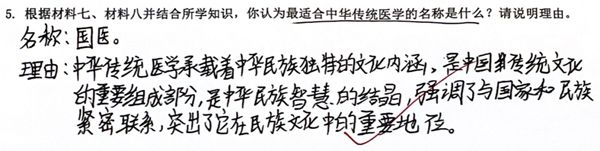 5. 根据材料七、材料八并结合所学知识，你认为最适合中华传统医学的名称是什么？请说明理由。
名称：国医。
理由：中华传统医学承载着中华民族独特的文化内涵，是中国传统文化
的重要组成部分，是中华民族智慧的结晶，强调了与国家和民族
紧密联系，突出了它在民族文化中的重要地位。